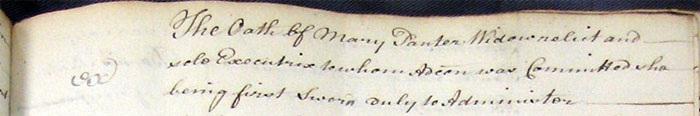 The Oath of Mary Panter Widow relict and
sole Executrix to whom Adcon was Committed she
being first Sworn duly to Administer